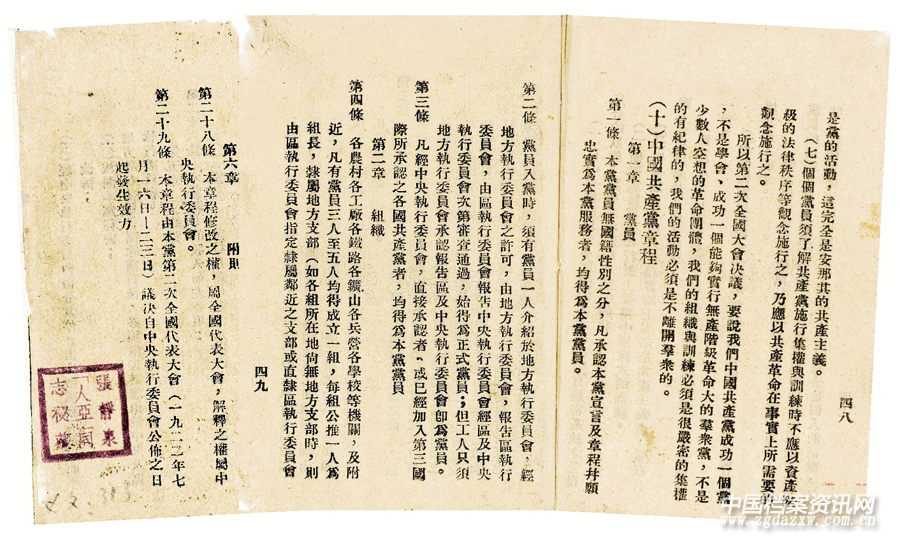 是黨的活動，這完全是安那其的共產主義。
（七）個個黨員須了解共產黨施行集權與訓練時不應以資產階
級的法律秩序等觀念施行之，乃應以共產革命在事實上所需要的
觀念施行之。
所以第二次全國大會決議，要說我們中國共產黨成功一個黨
，不是學會、成功一個能夠實行無產階級革命大的羣衆黨，不是
少數人空想的革命團體，我們的組織與訓練必須是很嚴密的集權
的有紀律的，我們的活動必須是不離開羣衆的。
（十）中國共產黨章程
第一章　黨員
第一條　本黨黨員無國籍性別之分，凡承認本黨宣言及章程并願
忠實爲本黨服務者，均得爲本黨黨員。
四八
第二條　黨員入黨時，須有黨員一人介紹於地方執行委員會，經
地方執行委員會之許可，由地方執行委員會，報告區執行
委員會，由區執行委員會報告中央執行委員會經區及中央
執行委員會次第審查通過，始得爲正式黨員；但工人只須
地方執行委員會承認報告區及中央執行委員會卽爲黨員。
第三條　凡經中央執行委員會，直接承認者、或已經加入第三國
際所承認之各國共產黨者，均得爲本黨黨員
第二章　組織
第四條　各農村各工廠各鐵路各鑛山各兵營各學校等機關，及附
近，凡有黨員三人至五人均得成立一組，每組公推一人爲
組長，隸屬地方支部（如各組所在地尙無地方支部時，則
由區執行委員會指定隸屬鄰近之支部或直隸區執行委員會
四九
第六章　附則
第二十八條　本章程修改之權，屬全國代表大會，解釋之權屬中
央執行委員會。
第二十九條　本章程由本黨第二次全國代表大會（一九二二年七
月一六日—二三日）議決自中央執行委員會公佈之日
起發生效力
張靜泉
人亞同
志秘藏
中国档案资讯网
www.zgdazxw.com.cn